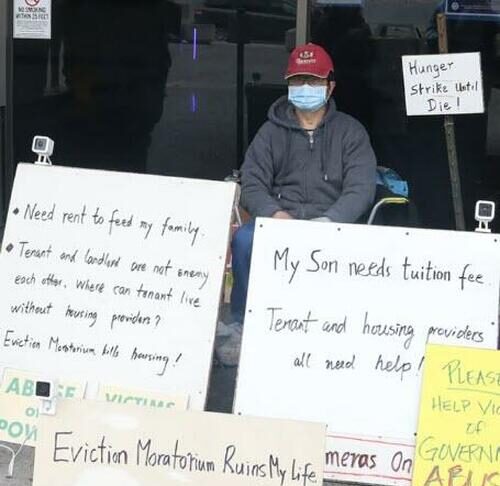 NO SMOKING
WITHIN 25 FEET
Hunger
Strike Until
Die!
• Need rent to feed my family.
• Tenant and landlord are not enemy
each other. Where can tenant live
without housing providers?
Eviction Moratorium kills housing!
My Son needs tuition fee.
Tenant and housing providers
all need help!
ABUSE
OF
POW
VICTIMS
Eviction Moratorium Ruins My Life
meras On
PLEASE
HELP VIC
OF
GOVERNM
ABUS